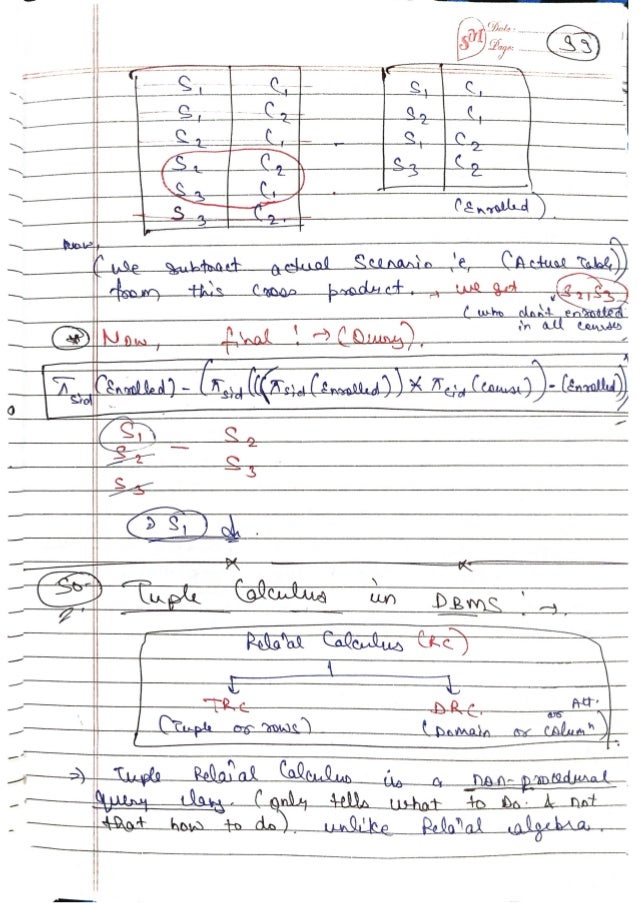 SM Date:
Page: 99
S1 C1
S1 C2
S2 C1
S2 C2
S3 C1
S3 C2.
S1 C1
S2 C1
S1 C2
S3 C2
(Enrolled)
Now,
(we subtract actual Scenario i.e, (Actual Table))
from this cross product. → we got (S2, S3)
(who don't enrolled
in all courses
* Now, final : → (Query).
π sid (Enrolled) - (π sid (((π sid (Enrolled)) × π cid (course)) - (Enrolled))
S1 - S2
S2 S3
S3
S1
50- Tuple Calculus in DBMS : →.
Rela'al Calculus (RC)
TRC DRC. or Att.
(Tuple or rows) (Domain or columⁿ)
⇒ Tuple Rela'al Calculus is a non-procedural
query lang. (only tells what to Do. & not
that how to do). unlike Rela'al algebra.